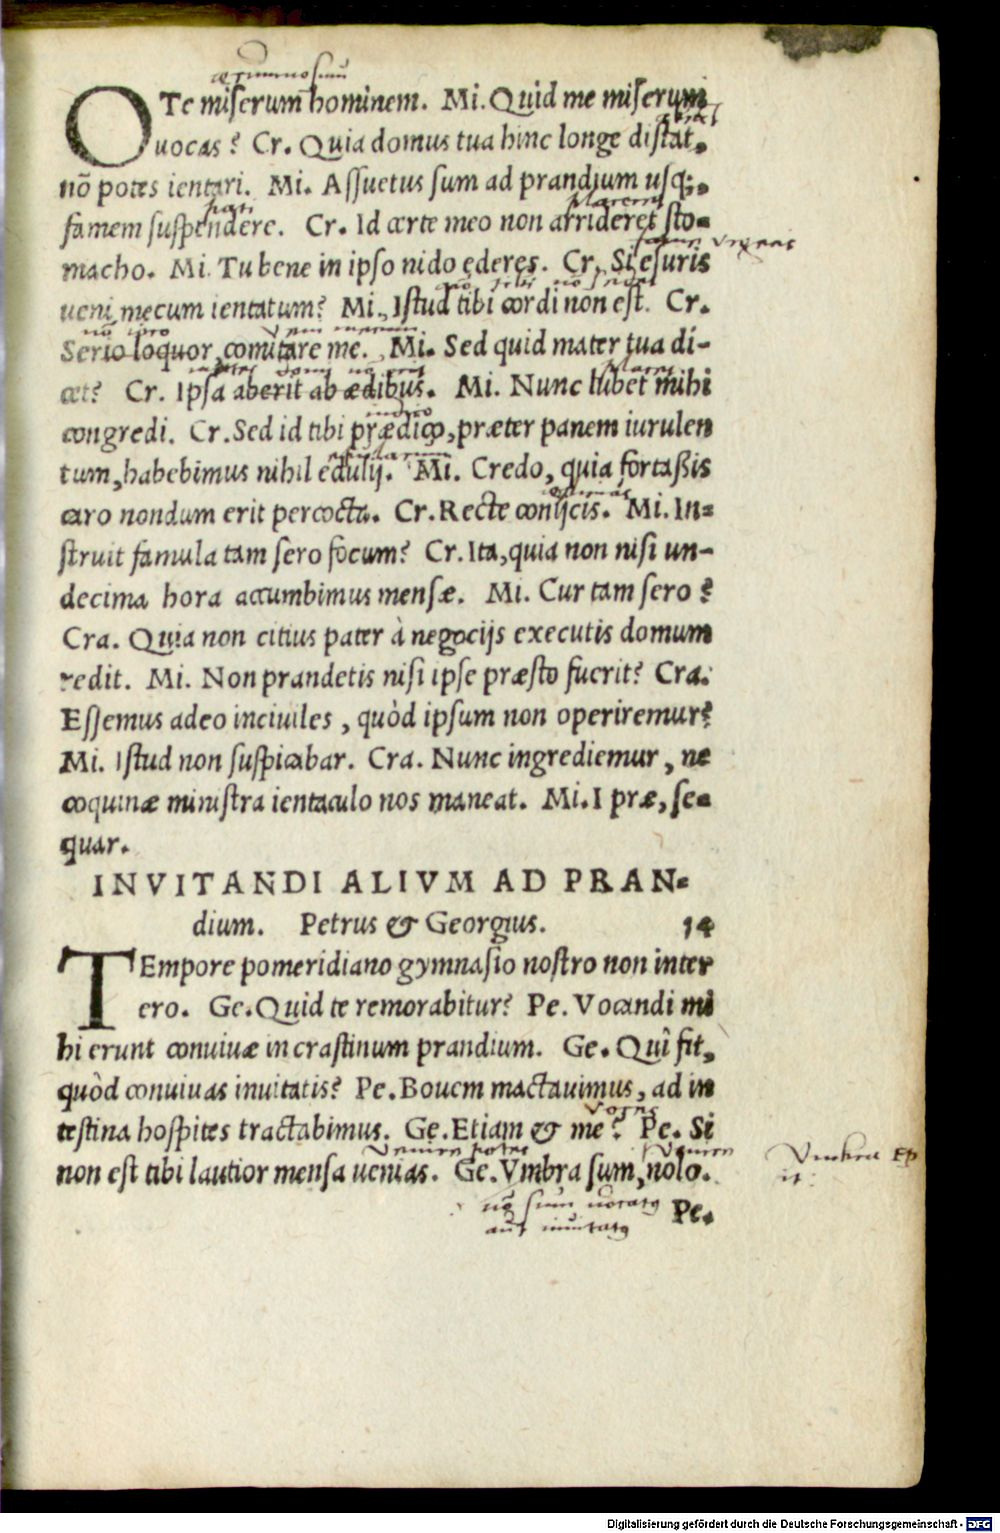 ærumnosum
O Te miserum hominem. Mi. Quid me miserum
uocas? Cr. Quia domus tua hinc longe distat,
nõ potes ientari. Mi. Assuetus sum ad prandium usq;
pati
famem suspendere. Cr. Id certe meo non arrideret sto-
macho. Mi. Tu bene in ipso nido ederes. Cr. Si esuris
ueni mecum ientatum? Mi. Istud tibi cordi non est. Cr.
nõ ioco
Serio loquor, comitare me. Mi. Sed quid mater tua di-
cet? Cr. Ipsa aberit ab ædibus. Mi. Nunc lubet mihi
congredi. Cr. Sed id tibi prædico, præter panem iurulen
tum, habebimus nihil edulij. Mi. Credo, quia fortaßis
caro nondum erit percocta. Cr. Recte conijcis. Mi. In-
struit famula tam sero focum? Cr. Ita, quia non nisi un-
decima hora accumbimus mensæ. Mi. Cur tam sero?
Cra. Quia non citius pater à negocijs executis domum
redit. Mi. Non prandetis nisi ipse præsto fuerit? Cra.
Essemus adeo inciuiles, quòd ipsum non operiremur?
Mi. Istud non suspicabar. Cra. Nunc ingrediemur, ne
coquinæ ministra ientaculo nos maneat. Mi. I præ, se-
quar.
INVITANDI ALIVM AD PRAN-
dium. Petrus & Georgius. 14
TEmpore pomeridiano gymnasio nostro non inter
ero. Ge. Quid te remorabitur? Pe. Vocandi mi
hi erunt conuiuæ in crastinum prandium. Ge. Quî fit,
quòd conuiuas inuitatis? Pe. Bouem mactauimus, ad in
testina hospites tractabimus. Ge. Etiam & me? Pe. Si
venire potes
non est tibi lautior mensa uenias. Ge. Vmbra sum, nolo.
nõ sum uocatus
aut inuitatus
Pe.
Digitalisierung gefördert durch die Deutsche Forschungsgemeinschaft - DFG